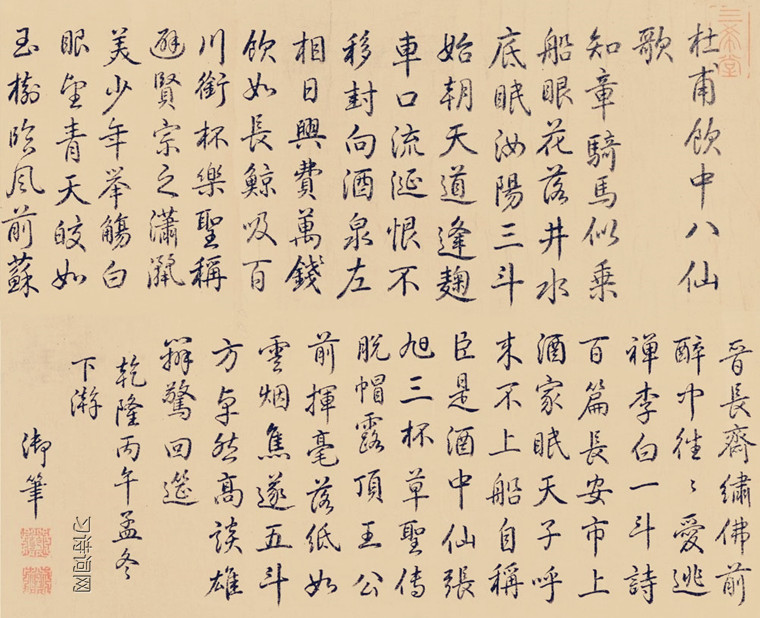 三希堂
杜甫飲中八仙
歌
知章騎馬似乘
船眼花落井水
底眠汝陽三斗
始朝天道逢麴
車口流涎恨不
移封向酒泉左
相日興費萬錢
飲如長鯨吸百
川銜杯樂聖稱
避賢宗之瀟灑
美少年举觴白
眼望青天皎如
玉樹臨風前蘇
晉長齊繡佛前
醉中往〻愛逃
禪李白一斗詩
百篇長安市上
酒家眠天子呼
来不上船自稱
臣是酒中仙張
旭三杯草聖傳
脱帽露頂王公
前揮毫落紙如
雲烟焦遂五斗
方卓然高談雄
辯驚回筵
乾隆丙午孟冬
下澣
御筆
习诗词网